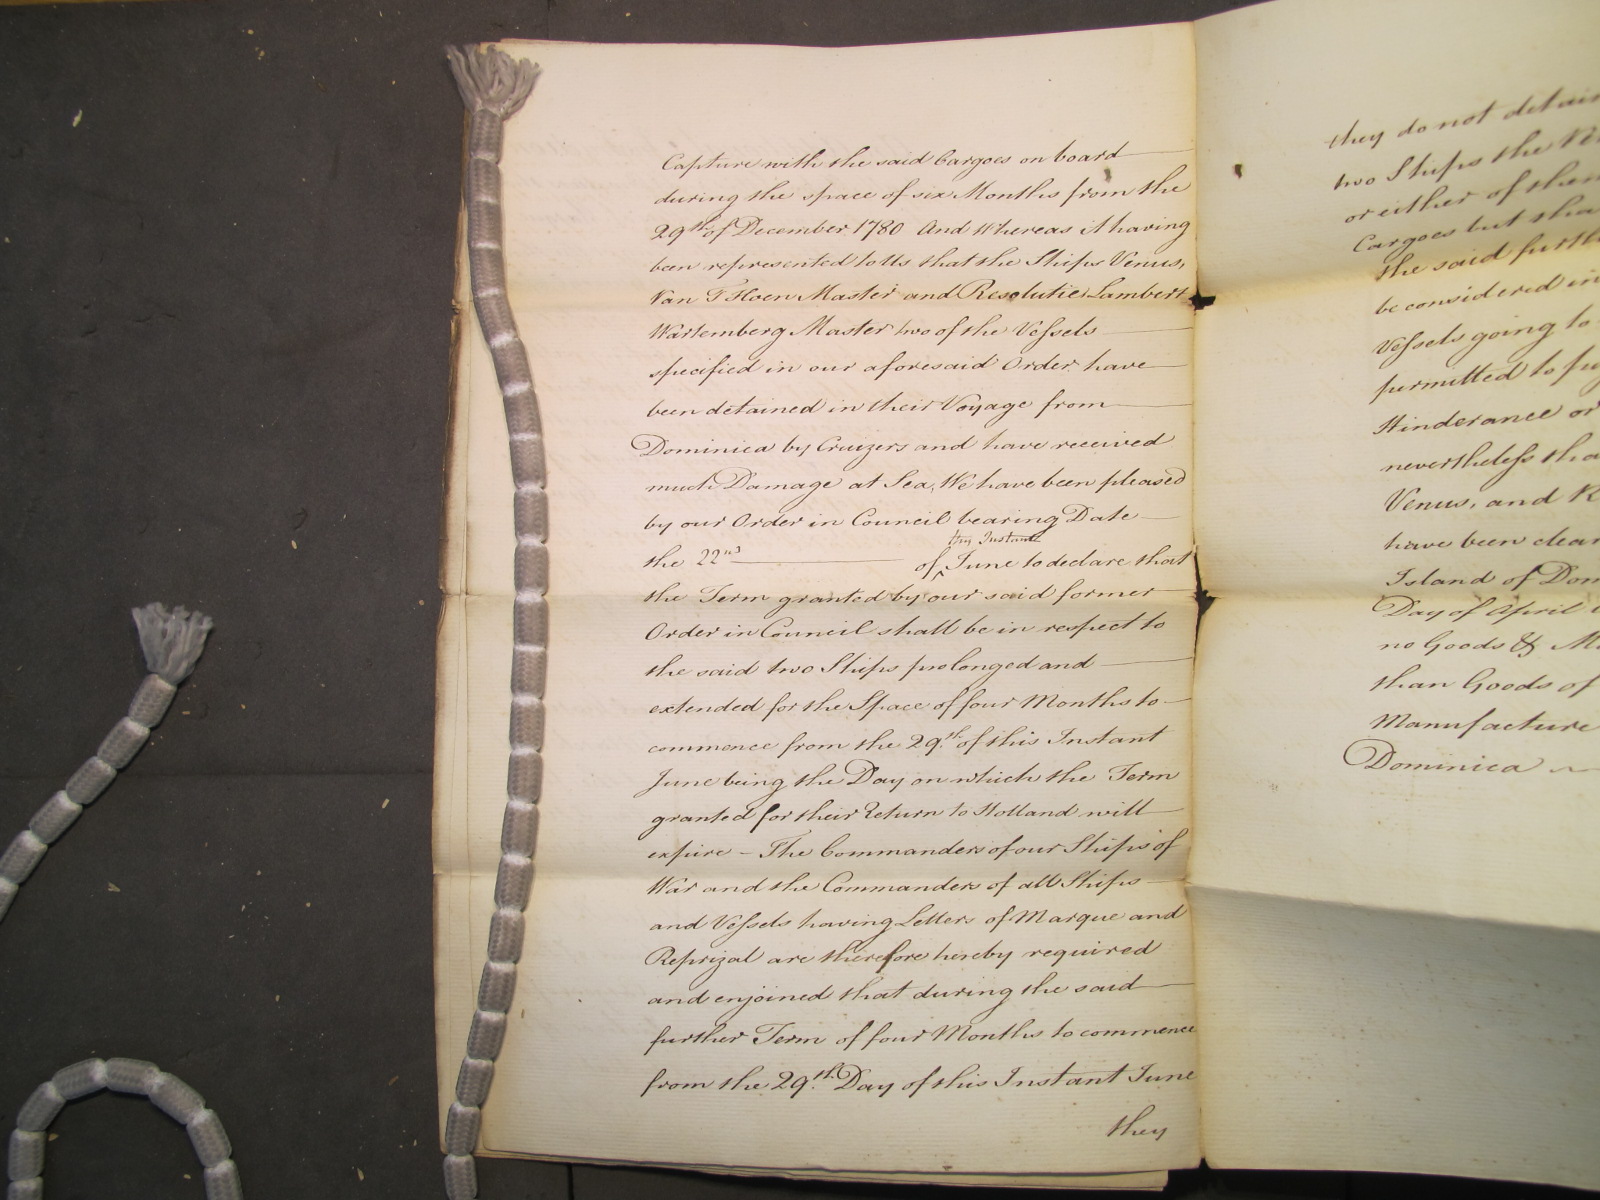 Capture with the said Cargoes on board
during the space of six Months from the
29th of December 1780 And Whereas it having
been represented to Us that the Ships Venus,
Van T Hoen Master and Resolutie Lambert
Wartemberg Master two of the Vessels
specified in our aforesaid Order have
been detained in their Voyage from
Dominica by Cruizers and have received
much Damage at Sea, We have been pleased
by our Order in Council bearing Date
the 22nd of this Instant June to declare that
the Term granted by our said former
Order in Council shall be in respect to
the said two Ships prolonged and
extended for the Space of four Months to
commence from the 29th of this Instant
June being the Day on which the Term
granted for their Return to Holland will
expire - The Commanders of our Ships of
War and the Commanders of all Ships
and Vessels having Letters of Marque and
Reprizal are therefore hereby required
and enjoined that during the said
further Term of four Months to commence
from the 29th Day of this Instant June
they
they do not detain
two Ships the
or either of them
Cargoes but sha
the said furth
be considered in
Vessels going to
permitted to
Hinderance or
nevertheless tha
Venus, and R
have been clear
Island of Dom
Day of April
no Goods & M
than Goods of
Manufacture
Dominica